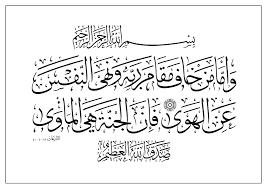 بِسْمِ اللَّهِ الرَّحْمَنِ الرَّحِيمِ
وَأَمَّا مَنْ خَافَ مَقَامَ رَبِّهِ وَنَهَى النَّفْسَ
عَنِ الْهَوَى فَإِنَّ الْجَنَّةَ هِيَ الْمَأْوَى
صَدَقَ اللَّهُ الْعَظِيمُ